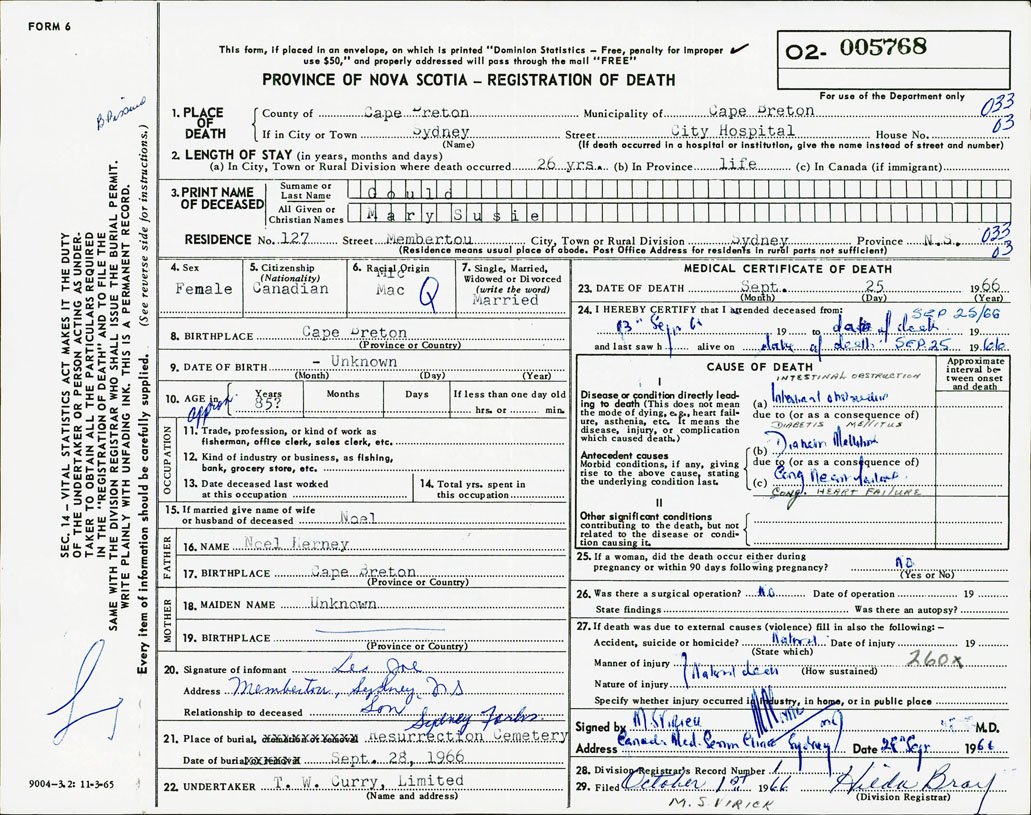 FORM 6
This form, if placed in an envelope, on which is printed "Dominion Statistics – Free, penalty for improper
use $50," and properly addressed will pass through the mail "FREE"
PROVINCE OF NOVA SCOTIA – REGISTRATION OF DEATH
02- 005768
For use of the Department only
SEC. 14 – VITAL STATISTICS ACT MAKES IT THE DUTY
OF THE UNDERTAKER OR PERSON ACTING AS UNDER-
TAKER TO OBTAIN ALL THE PARTICULARS REQUIRED
IN THE "REGISTRATION OF DEATH" AND TO FILE THE
SAME WITH THE DIVISION REGISTRAR WHO SHALL ISSUE THE BURIAL PERMIT.
WRITE PLAINLY WITH UNFADING INK. THIS IS A PERMANENT RECORD.
Every item of information should be carefully supplied. (See reverse side for instructions.)
1. PLACE OF DEATH
County of Cape Breton Municipality of Cape Breton 033
If in City or Town Sydney Street City Hospital House No. 03
(Name) (If death occurred in a hospital or institution, give the name instead of street and number)
2. LENGTH OF STAY (in years, months and days)
(a) In City, Town or Rural Division where death occurred 26 yrs. (b) In Province life (c) In Canada (if immigrant)
3. PRINT NAME OF DECEASED
Surname or Last Name Gould
All Given or Christian Names Mary Susie
RESIDENCE No. 127 Street Membertou City, Town or Rural Division Sydney Province N.S. 033
03
(Residence means usual place of abode. Post Office Address for residents in rural parts not sufficient)
4. Sex
Female
5. Citizenship
(Nationality)
Canadian
6. Racial Origin
Mic
Mac Q
7. Single, Married,
Widowed or Divorced
(write the word)
Married
8. BIRTHPLACE Cape Breton
(Province or Country)
9. DATE OF BIRTH - Unknown
(Month) (Day) (Year)
10. AGE in approx. Years 85? Months Days If less than one day old
hrs. or min.
OCCUPATION
11. Trade, profession, or kind of work as
fisherman, office clerk, sales clerk, etc.
12. Kind of industry or business, as fishing,
bank, grocery store, etc.
13. Date deceased last worked
at this occupation
14. Total yrs. spent in
this occupation
15. If married give name of wife
or husband of deceased Noel
FATHER
16. NAME Noel Herney
17. BIRTHPLACE Cape Breton
(Province or Country)
MOTHER
18. MAIDEN NAME Unknown
19. BIRTHPLACE
(Province or Country)
20. Signature of informant Leo Joe
Address Membertou, Sydney, N.S.
Relationship to deceased Son
Sydney Forks.
21. Place of burial, Resurrection Cemetery
Date of burial Sept. 28, 1966
22. UNDERTAKER T. W. Curry, Limited
(Name and address)
9004-3.2: 11-3-65
MEDICAL CERTIFICATE OF DEATH
23. DATE OF DEATH Sept. 25 1966
(Month) (Day) (Year)
24. I HEREBY CERTIFY that I attended deceased from: SEP 25/66
13th Sept 66 19 to date of death 19
and last saw h alive on date of death SEP 25 1966
CAUSE OF DEATH
Approximate
interval be-
tween onset
and death
INTESTINAL OBSTRUCTION
I
Disease or condition directly lead-
ing to death (This does not mean
the mode of dying, e.g., heart fail-
ure, asthenia, etc. It means the
disease, injury, or complication
which caused death.)
(a) Intestinal obstruction
due to (or as a consequence of)
DIABETIS MELLITUS
Antecedent causes
Morbid conditions, if any, giving
rise to the above cause, stating
the underlying condition last.
(b)
due to (or as a consequence of)
(c) Cong Heart failure
CONG. HEART FAILURE
II
Other significant conditions
contributing to the death, but not
related to the disease or condi-
tion causing it.
25. If a woman, did the death occur either during
pregnancy or within 90 days following pregnancy? NO
(Yes or No)
26. Was there a surgical operation? NO Date of operation 19
State findings Was there an autopsy?
27. If death was due to external causes (violence) fill in also the following: –
Accident, suicide or homicide? Natural Date of injury 19
(State which)
260x
Manner of injury (How sustained)
Natural death
Nature of injury
Specify whether injury occurred in Industry, in home, or in public place
Signed by M. S. Virick M.D.
Address Sydney Date 28th Sept 1966
28. Division Registrar's Record Number 1
29. Filed October 1st 1966 Hilda Bray
(Division Registrar)
M. S. VIRICK